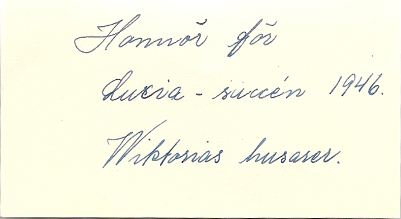 Honnör för
Lucia-succén 1946.
Wiktorias husarer.